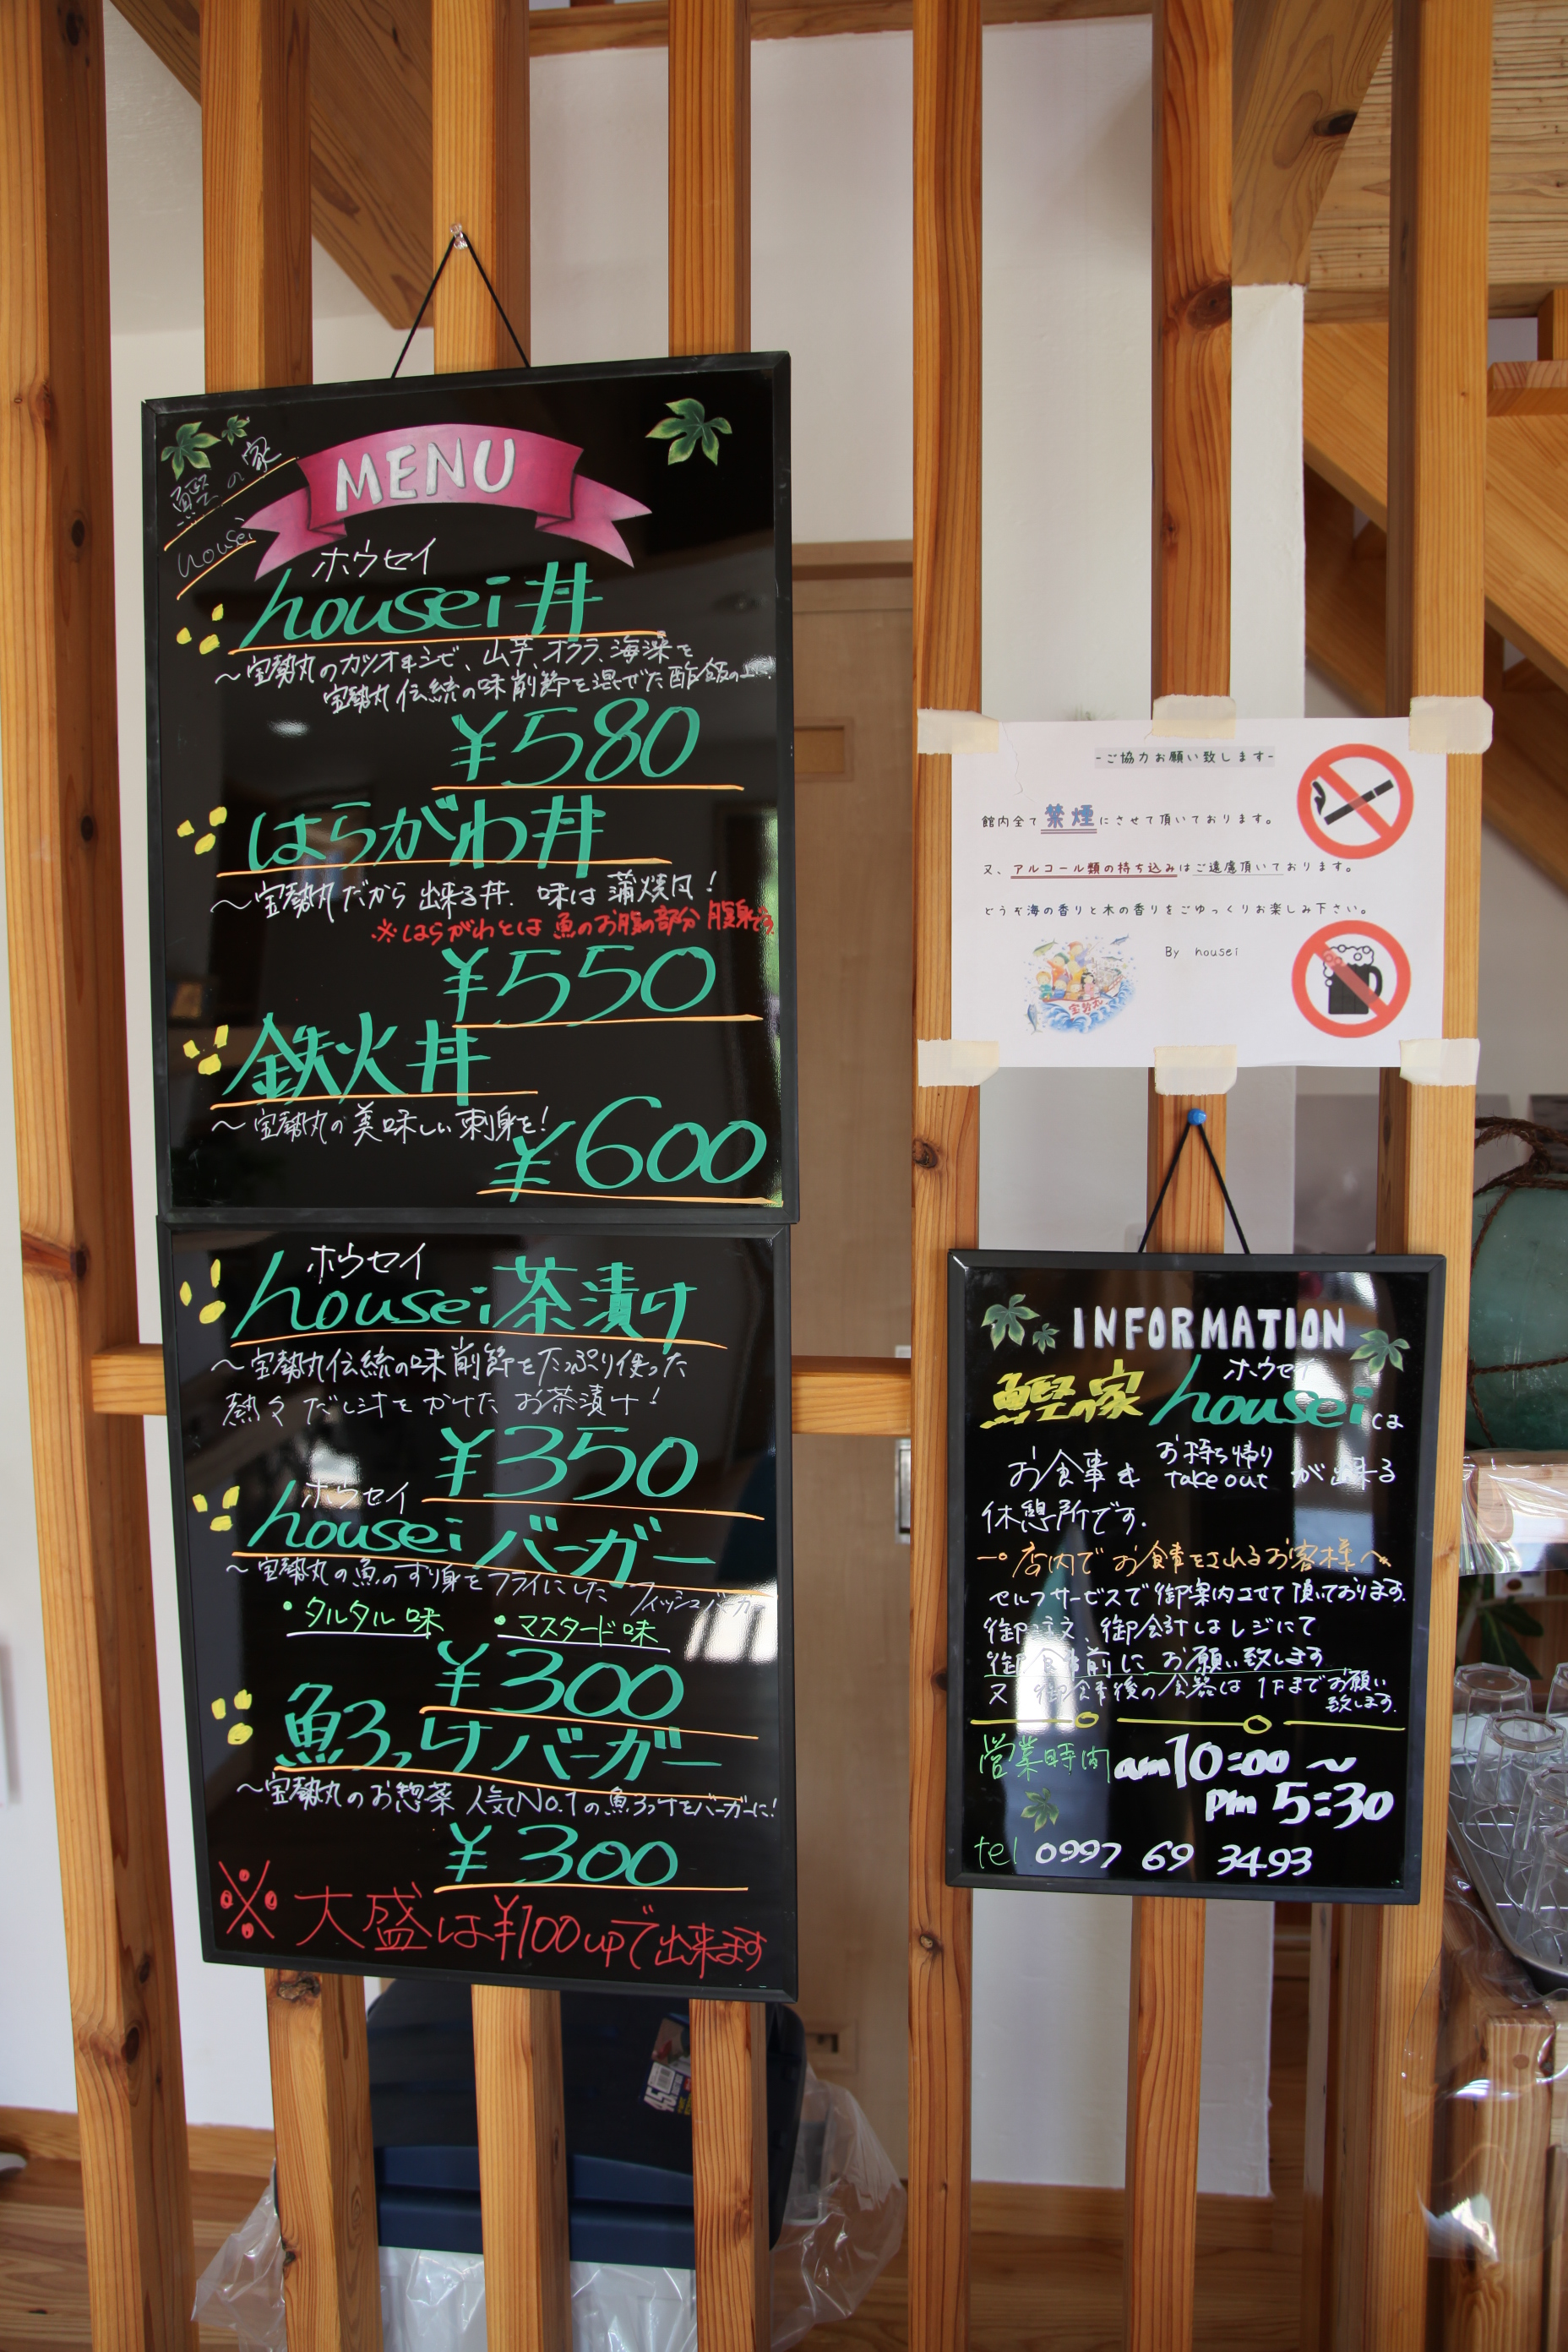 鰹の家
housei
MENU
ホウセイ
housei丼
～宝勢丸のカツオorシビ、山芋、オクラ、海藻を
宝勢丸伝統の味削節を混ぜた酢飯の上に!
¥580
はらがわ丼
～宝勢丸だから出来る丼. 味は蒲焼風!
※はらがわとは魚のお腹の部分 腹身です.
¥550
鉄火丼
～宝勢丸の美味しい刺身を!
¥600
ホウセイ
housei茶漬け
～宝勢丸伝統の味削節をたっぷり使った
熱々だし汁をかけたお茶漬け!
¥350
ホウセイ
houseiバーガー
～宝勢丸の魚のすり身をフライにしたフィッシュバーガー
・タルタル味 ・マスタード味
¥300
魚ろっけバーガー
～宝勢丸のお惣菜人気No.1の魚ろっけをバーガーに!
¥300
※大盛は¥100upで出来ます
-ご協力お願い致します-
館内全て禁煙にさせて頂いております。
又、アルコール類の持ち込みはご遠慮頂いております。
どうぞ海の香りと木の香りをごゆっくりお楽しみ下さい。
By housei
宝勢丸
INFORMATION
ホウセイ
鰹の家 houseiは
お持ち帰り
お食事& take outが出来る
休憩所です.
店内でお食事をされるお客様へ
セルフサービスで御案内させて頂いております.
御注文、御会計はレジにて
御食事前にお願い致します
又 御食事後の食器は1Fまでお願い
致します.
営業時間 am10:00～
pm 5:30
tel 0997 69 3493